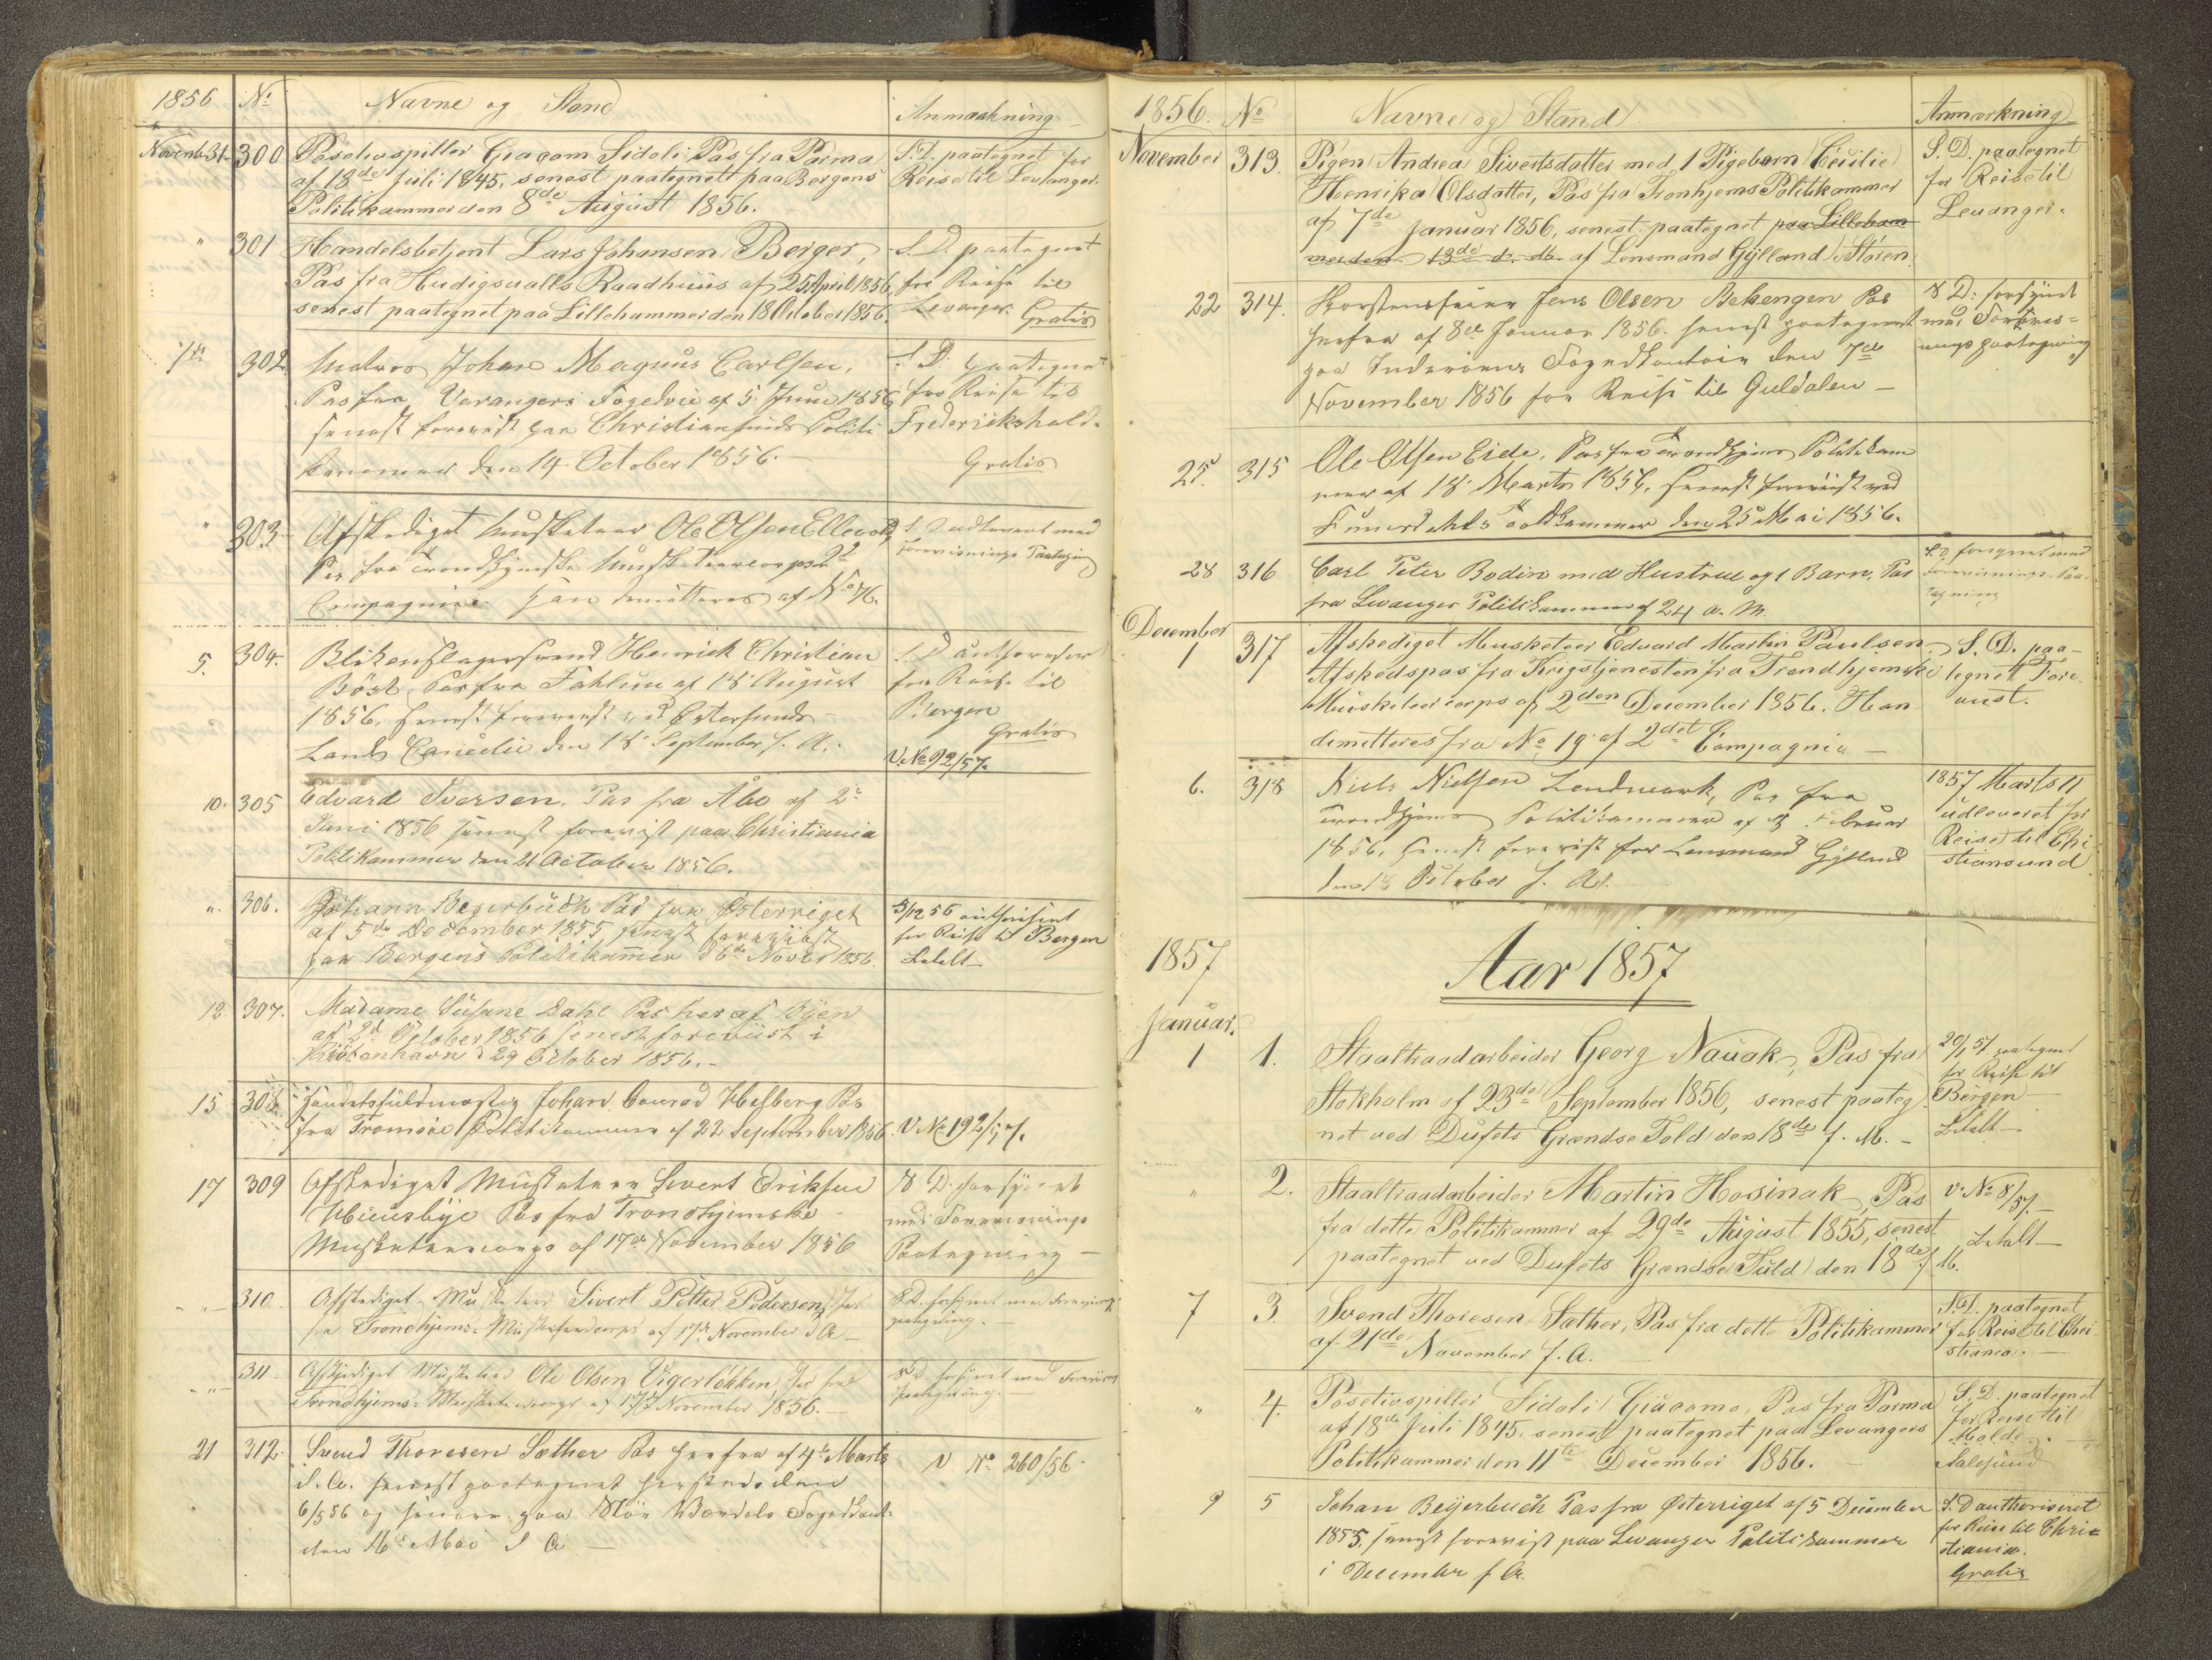 1856 No Navne og Stand Anmærkning
Novemb. 31. 300 Posetivspiller Giacom Sidoli Pas fra Parma S. D. paategnet for
af 18de Juli 1845, senest paategnet paa Bergens Reise til Levanger.
Politikammer den 8de August 1856.
" 301 Handelsbetjent Lars Johansen Berger, S. D. paategnet
Pas fra Hudigsvalls Raadhuus af 25 April 1856, for Reise til
senest paategnet paa Lillehammer den 18 October 1856. Levanger. Gratis
302. Matros Johan Magnus Carlsen, S. D. paategnet
Pas fra Varangers Fogderie af 5 Juni 1856 for Reise til
senest foreviist paa Christiansunds Politi Frederikshald.
kammer den 14 October 1856.— Gratis
" 303 Afskediget Musketeer Ole Olsen S. D. med
Pas fra Trondhjemske Musketeercorps 2det Forevisnings Paategning
Compagnie. Han demitteres af No 76.
5. 304. Blikenslagersvend Henrick Christian S. D. for
Böst, Pas fra Fahlun af 18 August for Reise til
1856. senest foreviist ved Østersunds Bergen
Lands Cancelie den 18 September s. A. Gratis
V. No 92/57.
10. 305 Edvard Iversen. Pas fra Åbo af 2.
Juni 1856 senest forevist paa Christiania
Politikammer den 21 October 1856.
" 306. Johann Begerbuch Pas fra Østerriget 3/12 56 authoriseret
af 5te December 1855 senest foreviist for Reise til Bergen
paa Bergens Politikammer d 6te Novbr 1856. Betalt—
12 307. Madame Susane Dahl Pas her af Byen
af 2d October 1856 senest foreviist i
Kiöbenhavn d 29 October 1856.–
15 308 Handelsfuldmægtig Johan Conrad Pas
fra Tromsøe Politikammer af 22 September 1856. V No 192/57.
17 309 Afskediget Musketeer Sivert Eriksen S D. forsynet
Pas fra Trondhjemske med Forevisnings
Musketeercorps af 17de November 1856 Paategning—
" 310. Afskediget Musketeer Sivert Petter Pedersen, Pas S. D. forsynet med Forevisnings
fra Trondhjems Musketeercorps af 17de November d A— paategning.—
" 311. Afskediget Musketeer Ole Olsen Vigerløkken Pas fra S. D. forsynet med Forevisnings
Trondhjems Musketeercorps af 17de November 1856.— paategning.—
21 312. Svend Thoresen Sæther Pas herfra af 4de Marts V No 260/56
d. A. senest paategnet hersteds den
6/5 56 og senere paa Fogedkont.
den 16de Mai d A—
1856. No Navne og Stand Anmærkning
November 313. Pigen Andrea Sivertsdatter med 1 Pigebarn Cecilie S. D. paategnet
Henrika Olsdatter, Pas fra Tronhjems Politikammer for Reise til
af 7de Januar 1856, senest paategnet paa Lilleham Levanger.
mer den 13de d. M. af Lensmand Gylland i Støren.
22 314. Skorsteensfeier Jens Olsen Bekengen Pas S D: forsynet
herfra af 8de Januar 1856. senest paategnet med Forevis=
paa Inderøens Fogedkontoir den 7de nings paategning
November 1856 for Reise til Guldalen—
25. 315 Ole Olsen Eide, Pas fra Trondhjems Politikam
mer af 18 Marts 1856, senest foreviist ved
Toldkammer den 25 Mai 1856.
28 316 Carl Peter Bodin med Hustrue og 1 Barn, Pas S. D. forsynet med
fra Levanger Politikammer af 24 d. M. Forevisnings-Paa-
tegning
December
1 317 Afskediget Musketeer Edvard Martin Paulsen, S. D. paa-
Afskedspas fra Krigstjenesten fra Trondhjemske tegnet Fore
Musketeercorps af 2den December 1856. Han viist.
demitteres fra No 19 af 2det Compagnie—
6. 318 Niels Nielsen Landmark, Pas fra 1857 Marts 11
Trondhjems Politikammer af Februar udleveret for
1856, senest forevist for Lensmand Gylland Reise til Chri
den October s. A. stiansund.
1857 Aar 1857
Januar.
1 1. Staaltraadarbeider Georg Nauak, Pas fra 20/1 57 paategnet
Stokholm af 23de September 1856, senest paateg for Reise til
net ved Dufets Grændse Told den 18de f. M.– Bergen—
Betalt—
" 2. Staaltraadarbeider Martin Hosinak, Pas v. No 8/57.—
fra dette Politikammer af 29de August 1855, senest Betalt—
paategnet ved Dufets Grændse Tuld den 18de f. M.
7 3. Svend Thoresen Sæther, Pas fra dette Politikammer S. D. paategnet
af 21de November f. A. for Reise til Chri
stiania.—
" 4. Posetivspiller Sidoli Giacomo, Pas fra Parma S. D. paategnet
af 18de Juli 1845, senest paategnet paa Levangers for Reise til
Politikammer den 11te December 1856. Molde og
Aalesund
9 5 Johan Beyerbuch Pas fra Østerriget af 5 December S. D authoriseret
1855. senest forevist paa Levanger Politikammer for Reise til Chri=
i December f A. stiania.
Gratis